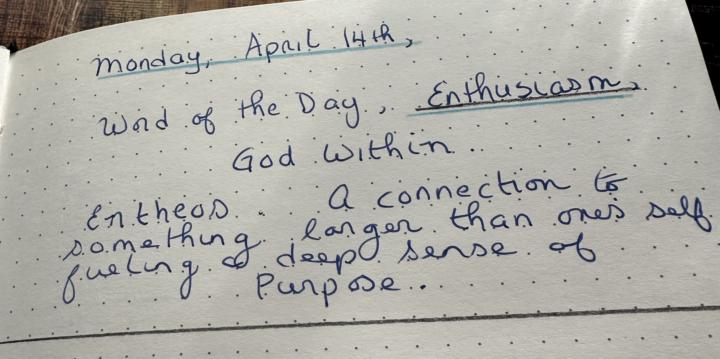 Monday, April 14th,
Word of the Day, Enthusiasm,
God Within..
Entheos. A connection to
something larger than one's self
fueling a deep sense of
Purpose...